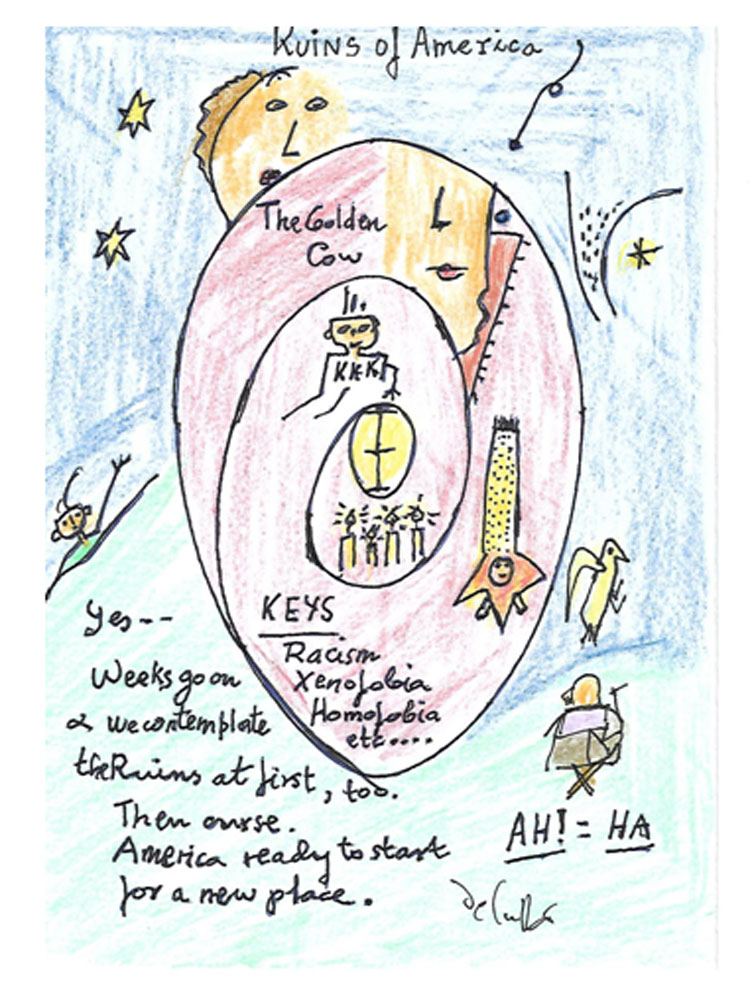 Ruins of America
The Golden
Cow
KKK
KEYS
Racism
Xenofobia
Homofobia
etc....
Yes--
Weeks go on
& we contemplate
the Ruins at first, too.
Then ourse.
America ready to start
for a new place.
AH! = HA